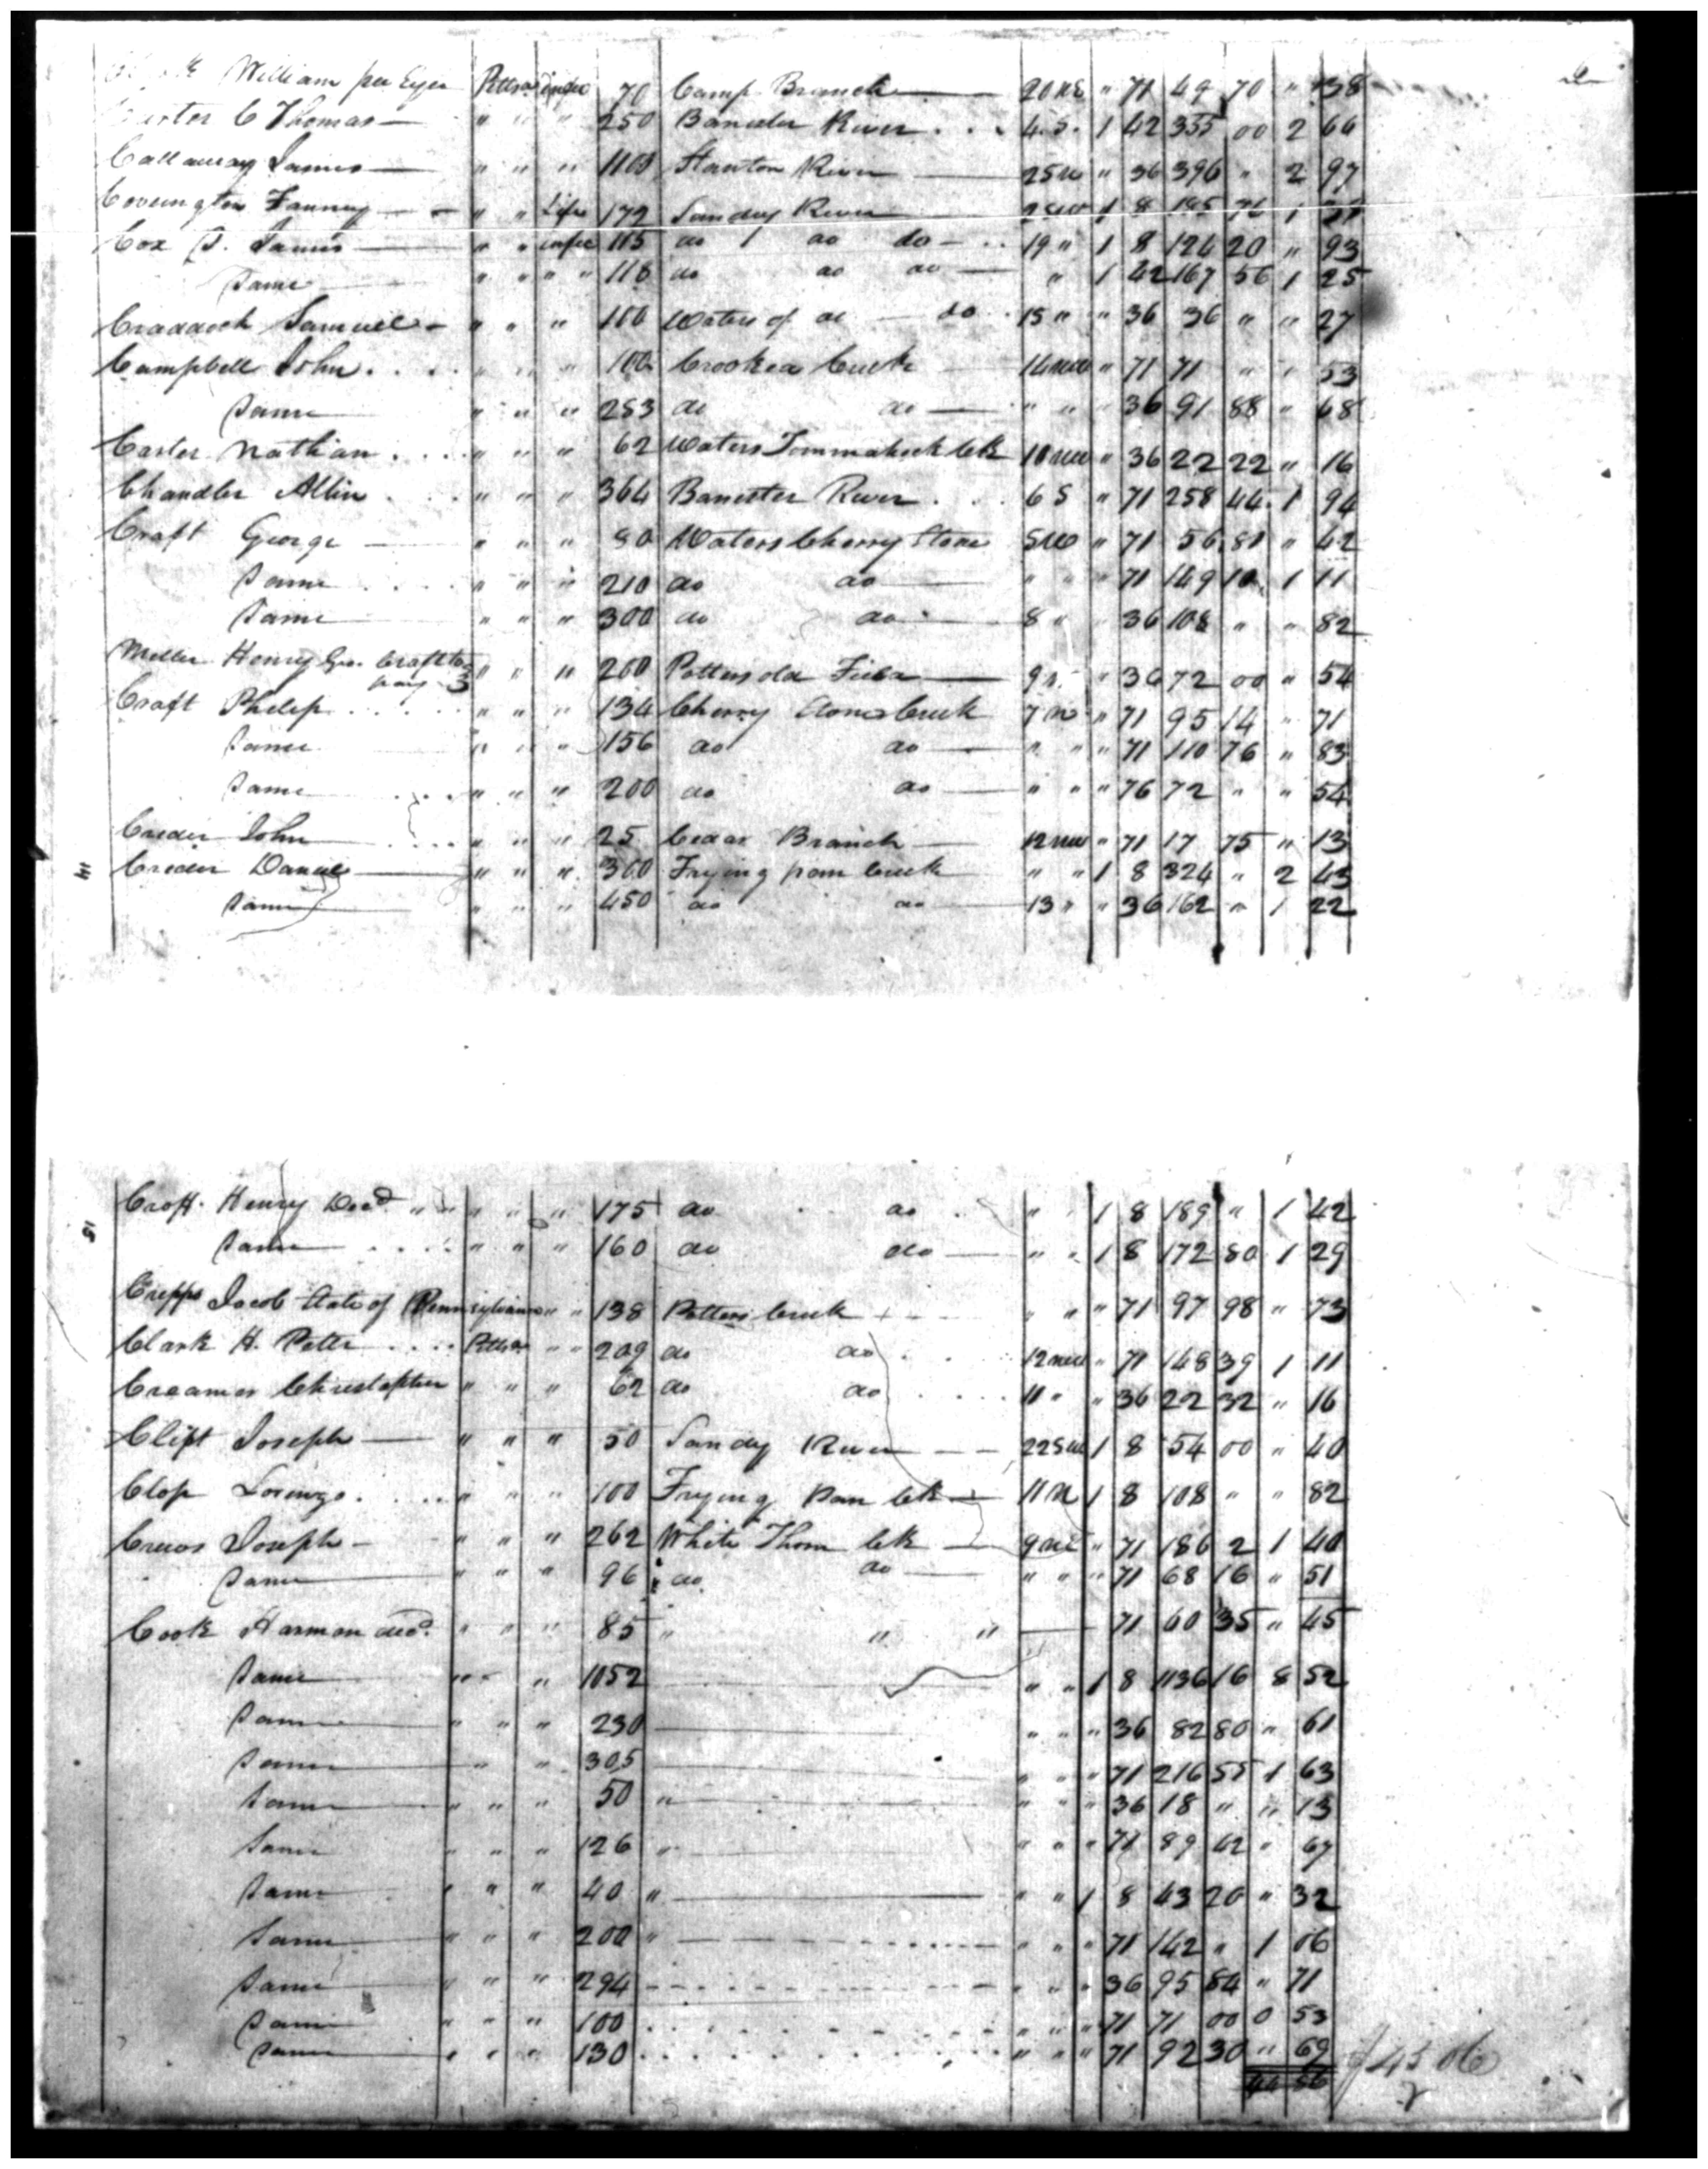 William per Eyer Pittsa infee 70 Camp Branch 20 NE " 71 49 70 " 38
C Thomas " " " 250 Banister River 4 S 1 42 355 00 2 66
Callaway James " " " 1100 Stanton River 25 N " 36 396 " 2 97
Covington Fanny " " Life 172 Sandy River 1 8 185 76 1
Cox P. James " " infee 115 do do do 19 " 1 8 124 20 " 93
Same " " " " 118 do do do " 1 42 167 56 1 25
Craddock Samuel " " " 100 Waters of do do 15 " " 36 36 " " 27
Campbell John " " " 100 Crooked Creek 14 NW " 71 71 " " 53
Same " " " 253 do do " " " 36 91 88 " 68
Carter Nathan " " " 62 Waters Tommahock Ck 18 NW " 36 22 22 " 16
Chandler Allin " " " 364 Banester River 6 S " 71 258 44 1 94
Craft George " " " 80 Waters Cherry Stone 5 NW " 71 56 81 " 42
Same " " " 210 do do " " " 71 149 10 1 11
Same " " " 300 do do 8 " 36 108 " " 82
Meller Henry Geo. Craft to pay 3 " " " 200 Potters old Field 9 N " 36 72 00 " 54
Craft Philip " " " 134 Cherry Stone Creek 7 N " 71 95 14 " 71
Same " " " 156 do do " " " 71 110 76 " 83
Same " " " 200 do do " " " 76 72 " " 54
Creider John " " " 25 Cedar Branch 12 NW " 71 17 75 " 13
14 Creider Daniel " " " 300 Frying pan Creek " " 1 8 324 " 2 43
Same " " " 450 do do 13 " " 36 162 " 1 22
15 Croft Henry Decd " " " " 175 do do " 1 8 189 " 1 42
Same " " " 160 do do " " 1 8 172 80 1 29
Crepps Jacob State of Pennsylvania " " 138 Potters Creek " " " 71 97 98 " 73
Clark H. Peter Pittsa " " 209 do do 12 NW " 71 148 39 1 11
Creamer Christopher " " " 62 do do 11 " " 36 22 32 " 16
Clift Joseph " " " 50 Sandy River 22 SW 1 8 54 00 " 40
Clop Lorenzo " " " 100 Frying Pan Ck 11 N 1 8 108 " " 82
Crews Joseph " " " 262 White Thorn Ck 9 NE " 71 186 2 1 40
Same " " " 96 do do " " " 71 68 16 " 51
Cook Harmon decd. " " " 85 " " " 71 60 35 " 45
Same " " " 1052 " " 1 8 1136 16 8 52
Same " " " 230 " " " 36 82 80 " 61
Same " " 305 " " " 71 216 55 1 63
Same " " " 50 " " " " 36 18 " " 13
Same " " " 126 " " " " 71 89 42 " 67
Same " " " 40 " " " 1 8 43 20 " 32
Same " " " 200 " " " " 71 142 " 1 06
Same " " " 294 " " " 36 95 84 " 71
Same " " " 100 " " " 71 71 00 0 53
Same " " " 130 " " " 71 92 30 " 69